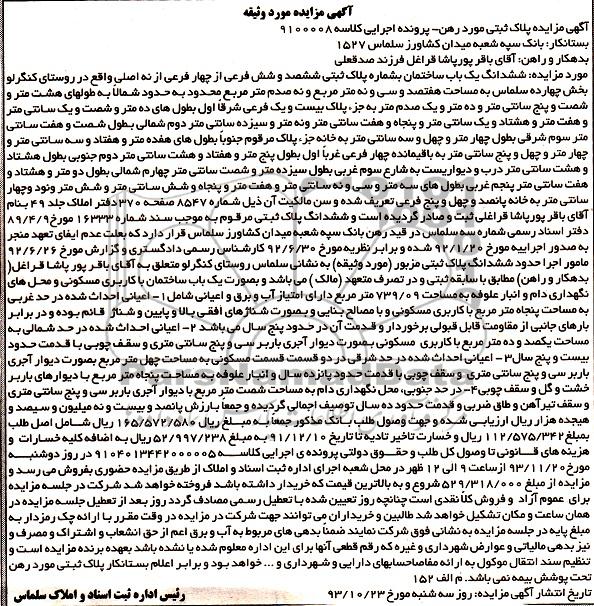 آگهی مزایده مورد وثیقه
آگهی مزایده پلاک ثبتی مورد رهن- پرونده اجرایی کلاسه ۹۱۰۰۰۰۸
بستانکار: بانک سپه شعبه میدان کشاورز سلماس ۱۵۲۷
بدهکار و راهن: آقای باقر پورپاشا قراغل فرزند صدقعلی
مورد مزایده: ششدانگ یک باب ساختمان بشماره پلاک ثبتی ششصد و شش فرعی از چهار فرعی از نه اصلی واقع در روستای کنگرلو
بخش چهارده سلماس به مساحت هفتصد و سی و نه متر مربع و نه صدم متر مربع محدود به حدود شمالاً به طولهای هشت متر و
شصت و پنج سانتی متر و ده متر و یک صدم متر به جزء پلاک بیست و یک فرعی شرقاً اول بطول های ده متر و شصت و یک سانتی متر
و هفت متر و هشتاد و یک سانتی متر و پنجاه و هفت سانتی متر ونه متر و سیزده سانتی متر دوم شمالی بطول شصت و هفت سانتی
متر سوم شرقی بطول چهار متر و چهل و سه سانتی متر به خانه جزء پلاک مرقوم جنوباً بطول های هفده متر و هفتاد و سه سانتی متر و
چهار متر و چهل و پنج سانتی متر به باقیمانده چهار فرعی غرباً اول بطول پنج متر و هفتاد و هشت سانتی متر دوم جنوبی بطول هشتاد
و هشت سانتی متر درب و دیواریست به شارع سوم غربی بطول سیزده متر و شصت سانتی متر چهارم شمالی بطول دو متر و هشتاد و
هفت سانتی متر پنجم غربی بطول های سه متر و سی و نه سانتی متر و هفت متر و پنجاه و شش سانتی متر و شش متر ونود وچهار
سانتی متر به خانه پانصد و چهل و پنج فرعی تعریف شده و سن مالکیت آن ذیل شماره ۸۵۴۷ صفحه ۳۷۰ دفتر املاک جلد ۴۹ بنام
آقای باقر پورپاشا قراغلی ثبت و صادر گردیده است و ششدانگ پلاک ثبتی مرقوم به موجب سند شماره ۱۶۳۳۳ مورخ ۸۹/۴/۹
دفتر اسناد رسمی شماره سه سلماس در قید رهن بانک سپه شعبه میدان کشاورز سلماس قرار دارد که بعلت عدم ایفای تعهد منجر
به صدور اجراییه مورخ ۹۲/۱/۲۰ شده و برابر نظریه مورخ ۹۲/۶/۳۰ کارشناس رسمی دادگستری و گزارش مورخ ۹۲/۶/۲۶
مامور اجرا حدود ششدانگ پلاک ثبتی مزبور (مورد وثیقه) به نشانی سلماس روستای کنگرلو متعلق به آقای باقر پور پاشا قراغل(
بدهکار و راهن) مطابق با سابقه ثبتی و در تصرف متعهد (مالک) می باشد و بصورت یک باب ساختمان با کاربری مسکونی و محل های
نگهداری دام و انبار علوفه به مساحت ۷۳۹/۰۹ متر مربع دارای امتیاز آب و برق و اعیانی شامل ۱- اعیانی احداث شده در حد غربی
به مساحت پنجاه متر مربع با کاربری مسکونی و با مصالح بنایی و بصورت شناژهای افقی بالا و پایین و شناژ قائم بوده و در برابر
بارهای جانبی از مقاومت قابل قبولی برخوردار و قدمت آن در حدود پنج سال می باشد ۲- اعیانی احداث شده در حد شمالی به
مساحت یکصد و ده متر مربع با کاربری مسکونی بصورت دیوار آجری باربر سی و پنج سانتی متری و سقف چوبی با قدمت حدود
بیست و پنج سال ۳- اعیانی احداث شده در حد شرقی در دو قسمت قسمت مسکونی به مساحت چهل متر مربع بصورت دیوار آجری
باربر سی و پنج سانتی متری و سقف چوبی با قدمت حدود پانزده سال و انبار علوفه به مساحت پنجاه متر مربع با دیوارهای باربر
خشت و گل و سقف چوبی ۴- در حد جنوبی، محل نگهداری دام به مساحت شصت متر مربع با دیوار آجری باربر سی و پنج سانتی متری
و سقف تیرآهن و طاق ضربی و قدمت حدود ده سال توصیف اجمالی گردیده و جمعاً به ارزش پانصد و بیست و نه میلیون و سیصد و
هیجده هزار ریال ارزیابی شده و جهت وصول طلب بانک مذکور جمعاً به مبلغ ریال ۱۶۵/۵۷۲/۵۸۰ ریال شامل اصل طلب
بمبلغ ۱۱۲/۵۷۵/۳۴۲ ریال و خسارت تاخیر تادیه تا تاریخ ۹۱/۱۲/۱۰ به مبلغ ۵۲/۹۹۷/۲۳۸ ریال به اضافه کلیه خسارات و
هزینه های قانونی تا وصول کل طلب و حقوق دولتی پرونده ی اجرایی کلاسه ۹۱۰۴۰۱۳۴۴۲۰۰۰۰۰۵ در روز دوشنبه
مورخ ۹۳/۱۱/۲۰ از ساعت ۹ الی ۱۲ ظهر در محل شعبه اجرای اداره ثبت اسناد و املاک از طریق مزایده حضوری بفروش می رسد و
مزایده از مبلغ ۵۲۹/۳۱۸/۰۰۰ شروع و به بالاترین قیمت که خریدار داشته باشد فروخته خواهد شد شرکت در جلسه مزایده
برای عموم آزاد و فروش کلاً نقدی است چنانچه روز تعیین شده با تعطیل رسمی مصادف گردد روز بعد از تعطیل جلسه مزایده در
همان ساعت و مکان تشکیل خواهد شد طالبین و خریداران می توانند جهت شرکت در مزایده در وقت مقرر با ارائه چک رمزدار به
مبلغ پایه در جلسه مزایده به نشانی فوق شرکت نمایند ضمناً بدهی های مربوط به آب و برق اعم از حق انشعاب و اشتراک و مصرف و
نیز بدهی مالیاتی و عوارض شهرداری و غیره که رقم قطعی آنها برای این اداره معلوم شده یا نشده باشد بعهده برنده مزایده است و
تنظیم سند انتقال موکول به ارائه مفاصاحسابهای دارایی و شهرداری و ... خواهد بود و برابر اعلام بستانکار پلاک ثبتی مورد رهن
تحت پوشش بیمه نمی باشد. م الف ۱۵۲
تاریخ انتشار آگهی مزایده: روز سه شنبه مورخ ۹۳/۱۰/۲۳
رئیس اداره ثبت اسناد و املاک سلماس